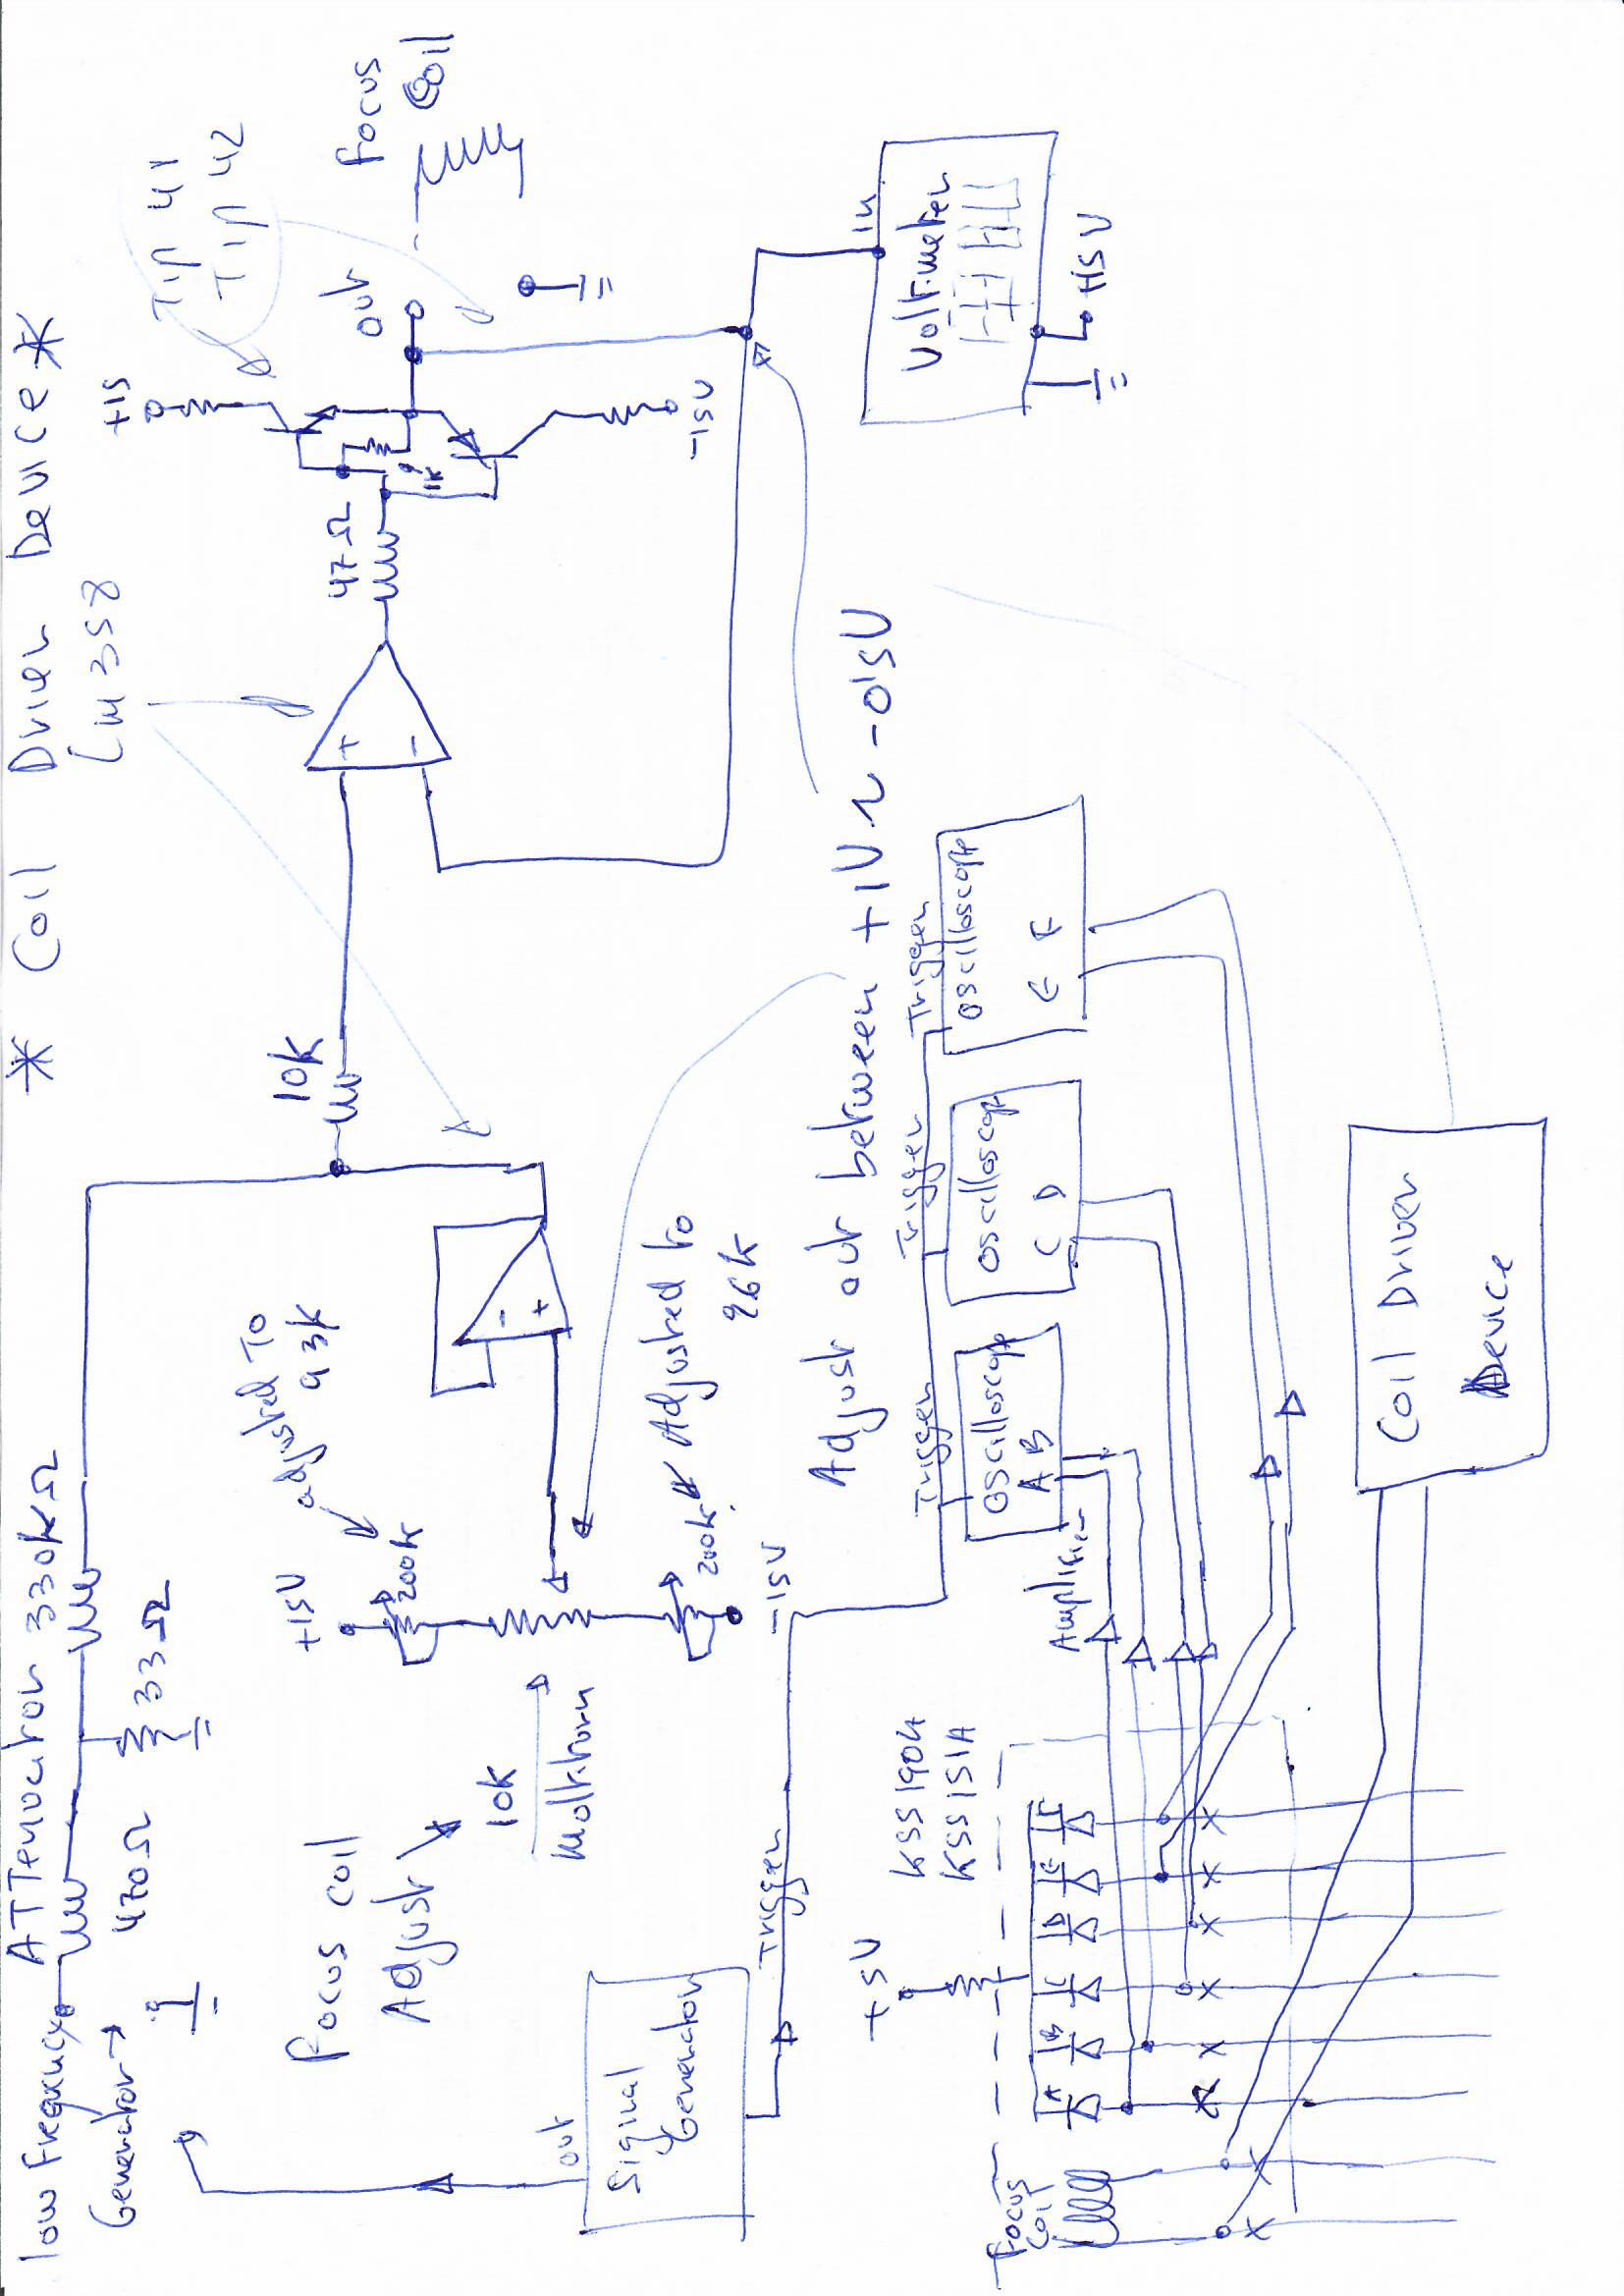 * Coil Driver Device *
Lm 358
Tip 41
Tip 42
low frequency
Generator →
ATTenuator 330kΩ
470Ω
33Ω
10k
47Ω
1k
+15
-15V
out
focus
Coil
+
-
focus coil
Adjust
10k
Multiturn
+15V
200k
adjusted To
93k
200k
Adjusted to
96k
-15V
-
+
in
Voltimeter
+15V
Adjust out between +1V ~ -0'5V
out
Signal
Generator
Trigger
Trigger
Oscilloscope
A B
Trigger
Oscilloscope
C D
Trigger
Oscilloscope
E F
Amplifier
KSS 190A
KSS 151A
+5V
A B C D E F
focus
coil
Coil Driver
Device